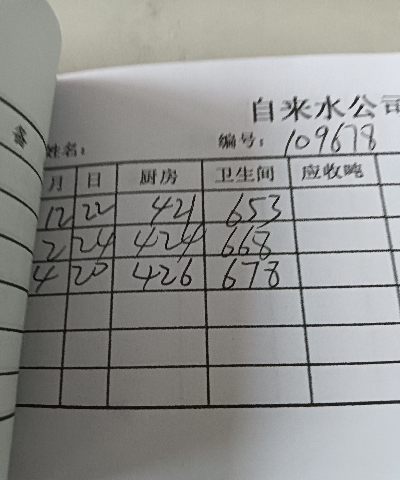 备
自来水公司
姓名： 编号：109678
月 日 厨房 卫生间 应收吨
12 22 421 653
2 24 424 668
4 20 426 678